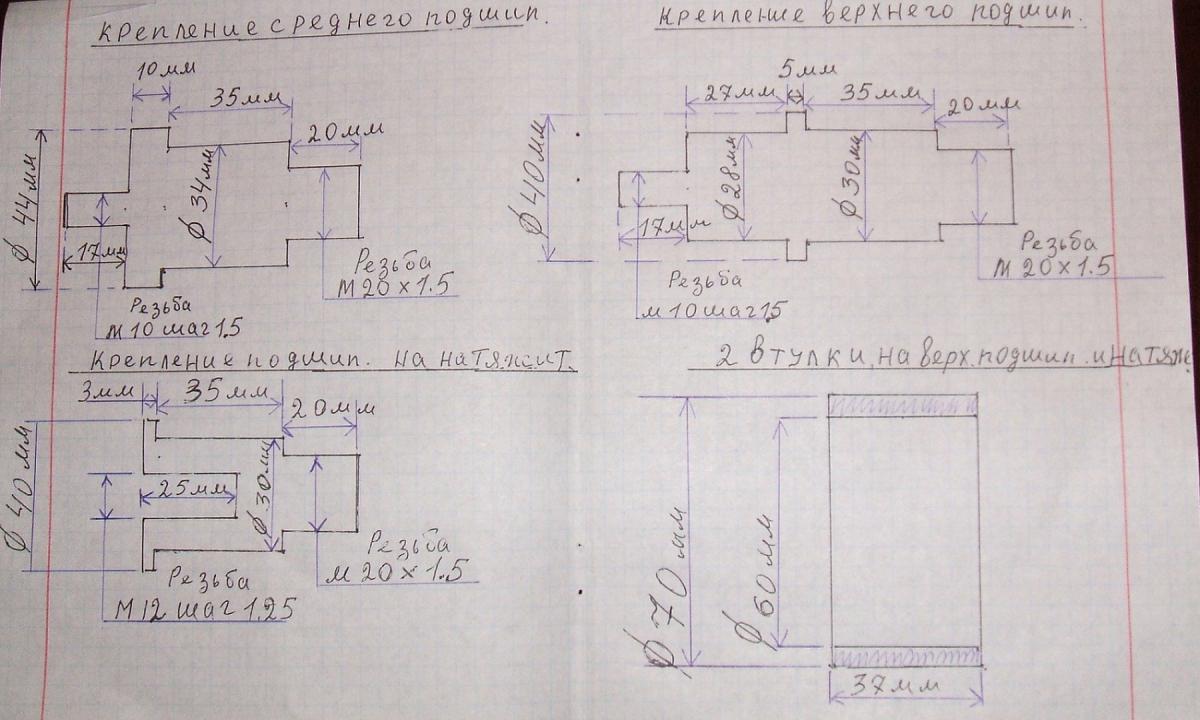 Крепление среднего подшип.
10мм
35мм
20мм
Ø 44мм
Ø 34мм
17мм
Резьба
М20×1.5
Резьба
М10 шаг 1.5
Крепление верхнего подшип.
5мм
27мм
35мм
20мм
Ø 40мм
Ø 28мм
Ø 30мм
17мм
Резьба
М20×1.5
Резьба
М10 шаг 1.5
Крепление подшип. на натяжит.
3мм
35мм
20мм
Ø 40мм
25мм
Ø 30мм
Резьба
М20×1.5
Резьба
М12 шаг 1.25
2 втулки, на верх. подшип. и натяж
Ø 70мм
Ø 60мм
37мм